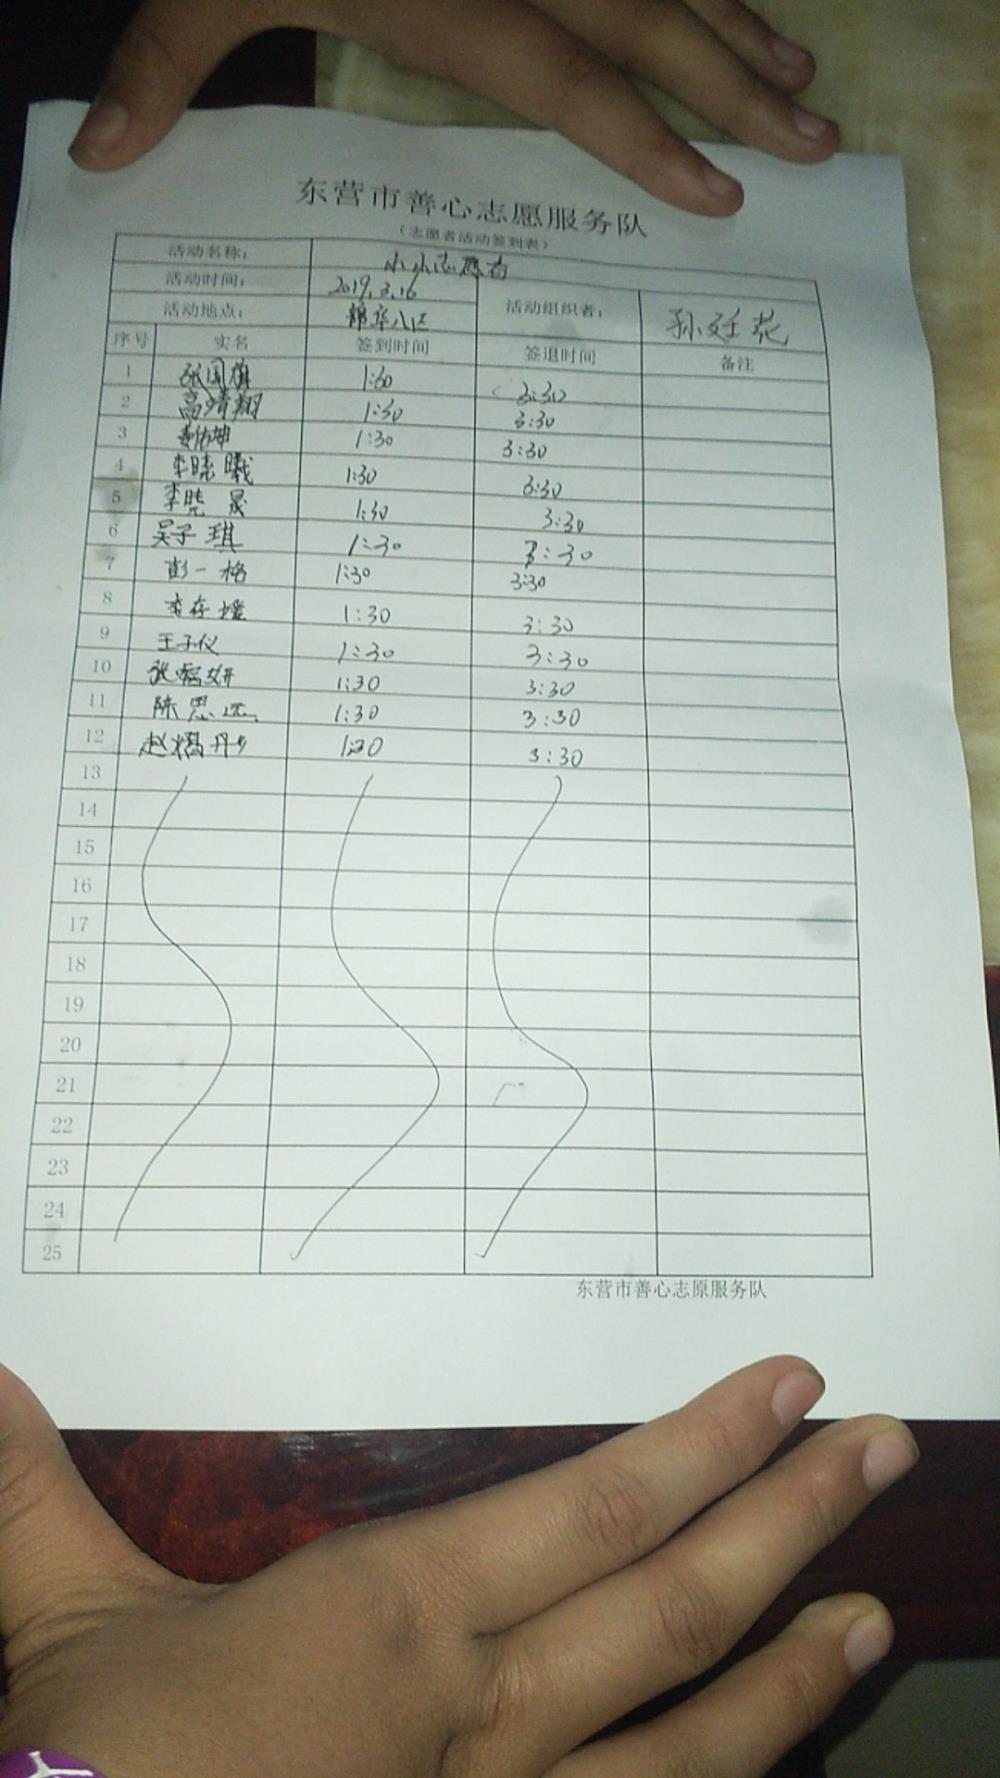 东营市善心志愿服务队
（志愿者活动签到表）
活动名称： 小小志愿者
活动时间： 2019.3.16 活动组织者： 孙廷花
活动地点： 锦华八区
序号 实名 签到时间 签退时间 备注
1 张国旗 1:30 3:30
2 高靖翔 1:30 3:30
3 1:30 3:30
4 李晓曦 1:30 3:30
5 李晓晟 1:30 3:30
6 吴子琪 1:30 3:30
7 彭一格 1:30 3:30
8 李存 1:30 3:30
9 王子仪 1:30 3:30
10 张 妍 1:30 3:30
11 陈思远 1:30 3:30
12 赵 丹 1:30 3:30
13
14
15
16
17
18
19
20
21
22
23
24
25
东营市善心志原服务队